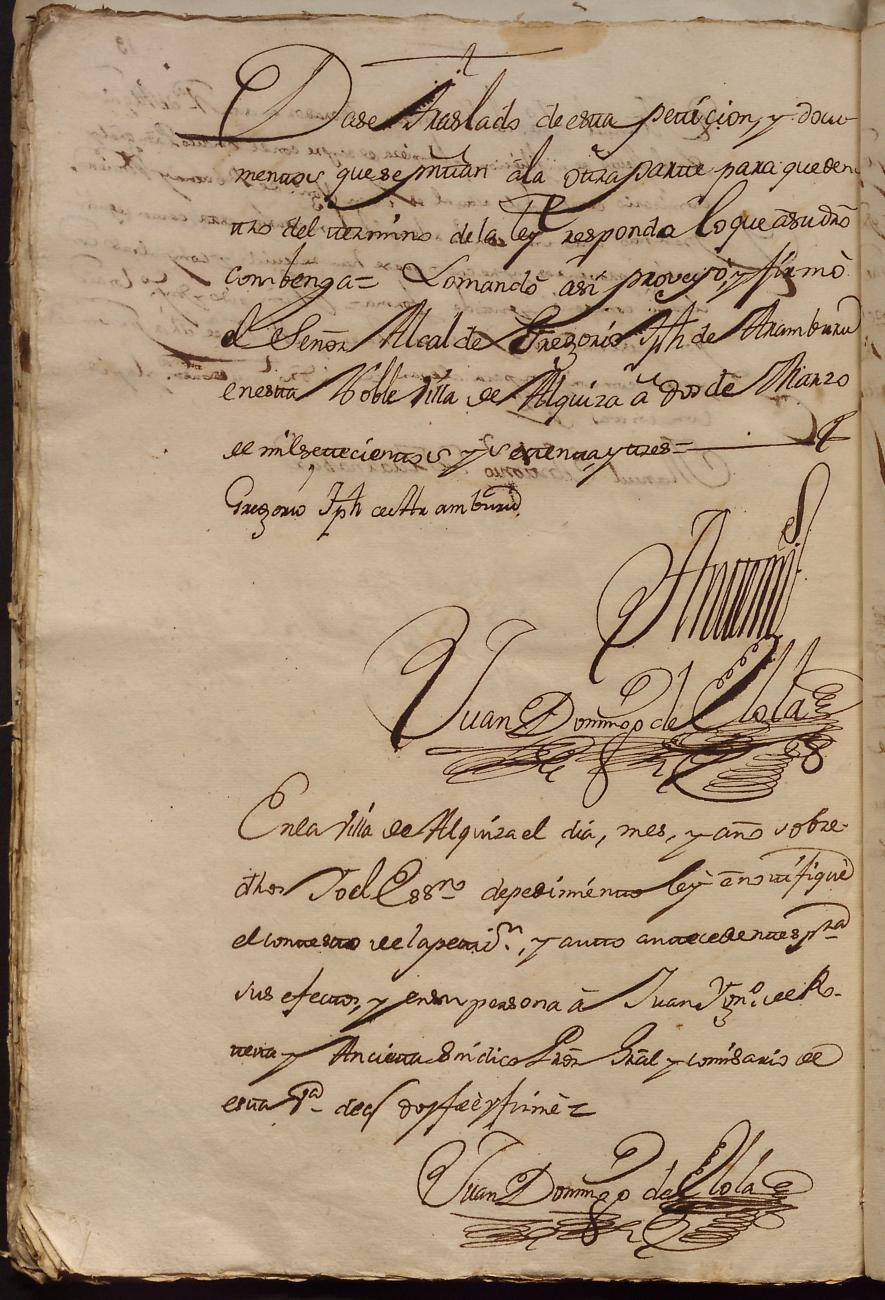 Dase traslado de esta peticion, y docu-
mentos que se presentan â la otra parte para que den
tro del termino de la ley responda lo que â su dro
combenga= Lo mandô así proveyó, y firmô
el Señor Alcalde Gregorio Jph de Aramburu
en esta Noble Villa de Alquiza â dos de Marzo
de mil settecientos y settenta y tres=
Gregorio Jph de Aramburu
Antemi
Juan Domingo de Olola
En la Villa de Alquiza el dia, mes, y año sobre-
dhos Yo el Essno de pedimento leý ê notifiqué
el contesto de la petizn, y autto antecedentes pra
sus efectos, y en su persona â Juan Ygno. de R-
teta y Ancieta Sindico Pror Gral y comisario de
esta Va de q doy feè y firmè=
Juan Domingo de Olola